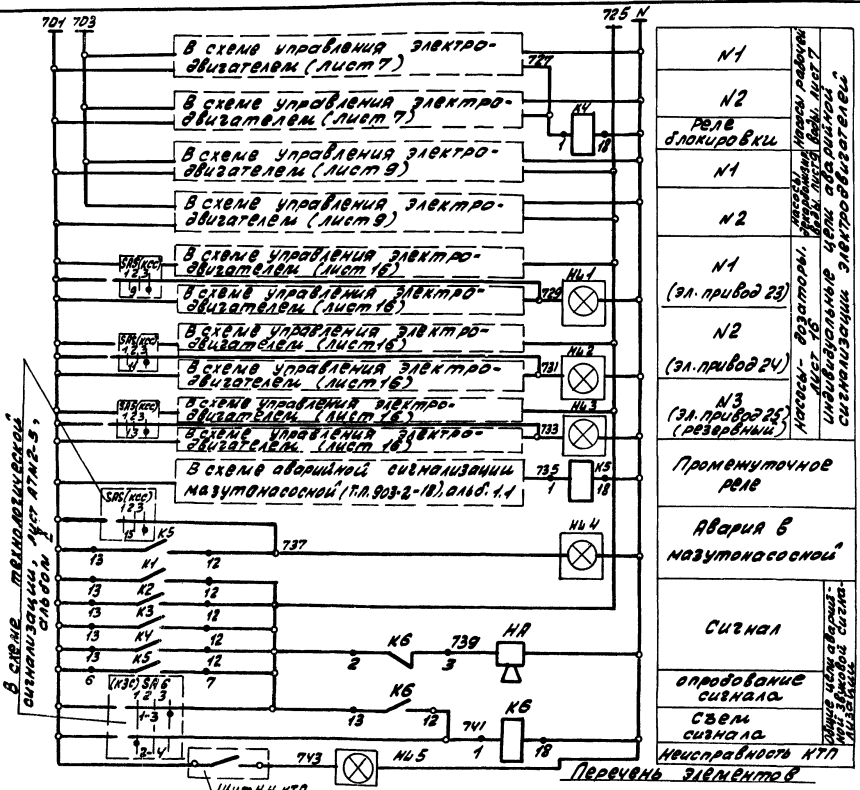 701 703 725 N
В схеме управления электро-
двигателем (лист 7)
727
В схеме управления электро-
двигателем (лист 7)
К4
1 18
В схеме управления электро-
двигателем (лист 9)
В схеме управления электро-
двигателем (лист 9)
SA5(КСС)
1 2 3
9
В схеме управления электро-
двигателем (лист 16)
В схеме управления электро-
двигателем (лист 16)
729
HL1
SA5(КСС)
1 2 3
11
В схеме управления электро-
двигателем (лист 16)
В схеме управления электро-
двигателем (лист 16)
731
HL2
SA5(КСС)
1 2 3
13
В схеме управления электро-
двигателем (лист 16)
В схеме управления электро-
двигателем (лист 16)
733
HL3
В схеме аварийной сигнализации
мазутонасосной (т.п. 903-2-18), альб. 1.1
735
1
К5
18
SA5(КСС)
1 2 3
15
13 К5 12
737
HL4
13 К1 12
13 К2 12
13 К3 12
13 К4 12
6 К5 7
2 К6 3
739
НА
(КЗС) SA6
1 2 3
1-3
2-4
13 К6 12
741
1
К6
18
743
HL5
В схеме технологической
сигнализации, лист АТМ2-5,
альбом
N1
N2
Реле
блокировки
Насосы рабочей
воды, лист 7
N1
N2
N1
(эл. привод 23)
N2
(эл. привод 24)
N3
(эл. привод 25)
(резервный)
Насосы-дозаторы,
лист 16
Индивидуальные цепи аварийной
сигнализации электродвигателей
Промежуточное
реле
Авария в
мазутонасосной
Сигнал
опробование
сигнала
Съем
сигнала
Общие цепи аварий-
ной звуковой сигна-
лизации
Неисправность КТП
Перечень элементов